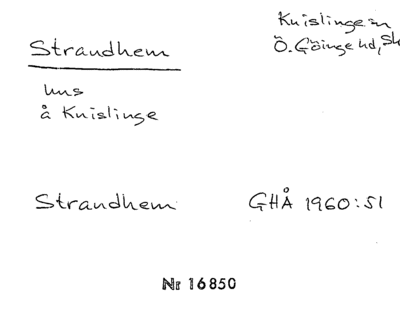 Strandhem
Knislinge sn
Ö. Göinge hd, Sk
hus
å Knislinge
Strandhem
GHÅ 1960:51
Nr 16850